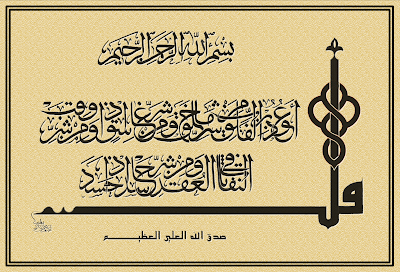 بسم الله الرحمن الرحيم
قل
أعوذ برب الفلق من شر ما خلق ومن شر غاسق إذا وقب ومن شر
النفاثات في العقد ومن شر حاسد إذا حسد
صدق الله العلي العظيم